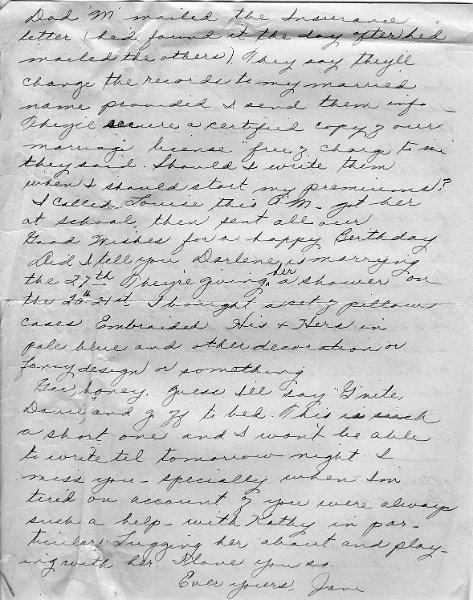 Dad "M" mailed the Insurance
letter (he'd found it the day after he'd
mailed the others). They say they'll
change the records to my married
name provided I send them info
They'll secure a certified copy of our
marriage license free of charge to me
they said. Should I write them
when I should start my premiums?
I called Louise this P.M. - got her
at school then sent all our
Good Wishes for a happy Birthday
Did I tell you Darlene is marrying
the 27th They're giving her a shower on
the 20th 21st I bought a set of pillow
cases Embraided His & Hers in
pale blue and other decoration or
fancy design or something
Gee honey, guess I'll say G'nite,
and g off to bed. This is such
a short one and I won't be able
to write til tomorrow night I
miss you - specially when I'm
tired on account of you were always
such a help - with Kathy in par-
ticular! Lugging her about and play-
ing with her. I love you so
Ever yours, Jane